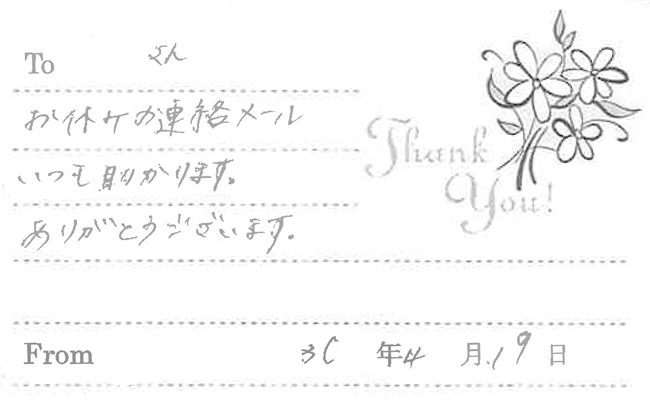 To さん
お休みの連絡メール
いつも助かります。
ありがとうございます。
Thank
You!
From 30年4月19日